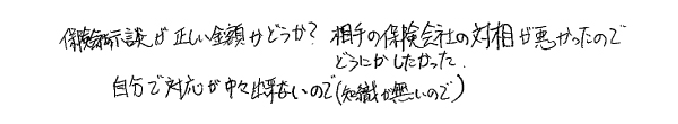 保険の示談が正しい金額かどうか? 相手の保険会社の対相が悪かったので
どうにかしたかった.
自分で対応が中々出来ないので(知識が無いので)